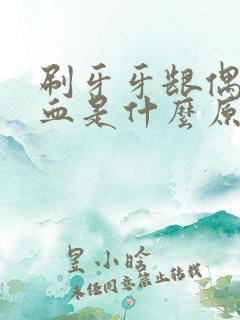 刷牙牙龈偶
血是什麽原
皇小啥
未经同意禁止转载